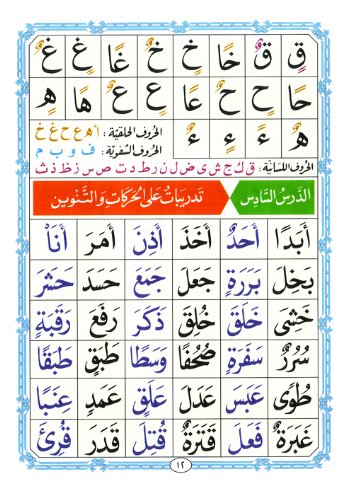 قٍ قٌ خًا خٍ خٌ غًا غٍ غٌ
حًا حٍ حٌ عًا عٍ عٌ هًا هٍ
هٌ ءً ءٍ ءٌ
الحُرُوف الحَلقيَّة: ا ه ع ح غ خ
الحُرُوف الشفويَّة: ف و ب م
الحُرُوف اللسَانيَّة: ق ك ج ش ي ض ل ن ر ط د ت ص س ز ظ ذ ث
الدَّرسُ السَّادِس تَدريبَات عَلى الحَركاتِ وَالتَّنْوين
أَبَدًا أَحَدٌ أَخَذَ أَذِنَ أَمَرَ أَنَا
بَخِلَ بَرَرَةٍ جَعَلَ جَمَعَ حَسَدَ حَشَرَ
خَشِىَ خَلَقَ خُلِقَ ذَكَرَ رَفَعَ رَقَبَةٍ
سُرُرٌ سَفَرَةٍ صُحُفًا وَسَطًا طَبَقٍ طَبَقًا
طُوًى عَبَسَ عَدَلَ عَلَقٍ عَمَدٍ عِنَبًا
غَبَرَةٌ فَعَلَ قَتَرَةٌ قُتِلَ قَدَرَ قُرِئَ
١٢